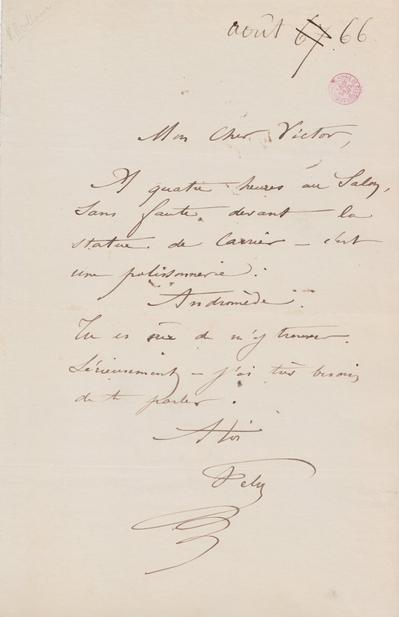 août 67 66
Mon Cher Victor,
A quatre heures au Salon,
Sans faute, devant la
statue de Carrier – c'est
une polissonnerie :
Andromède.
Tu es sûr de m'y trouver.
Sérieusement – j'ai très besoin
de te parler.
A toi
Fely